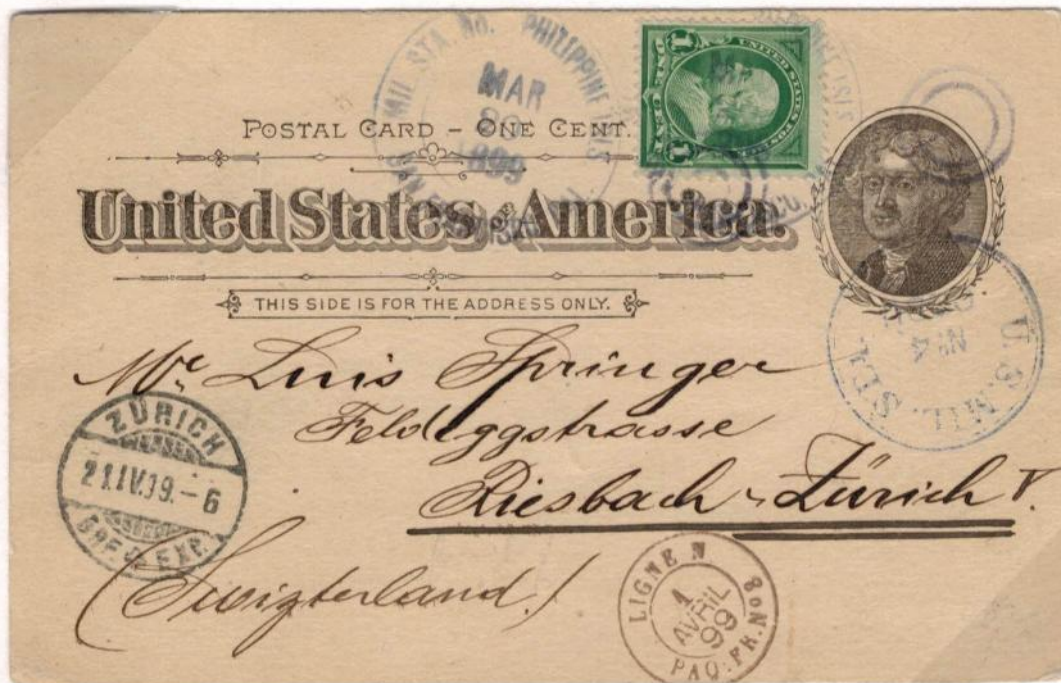 MIL. STA. No. PHILIPPINE ISLS
MAR
1899
SAN FRANCISCO
UNITED STATES POSTAGE
1 ONE CENT 1
POSTAL CARD – ONE CENT.
United States of America.
THIS SIDE IS FOR THE ADDRESS ONLY.
U.S. MIL. STA.
No 4
Mr Luis Springer
Feldeggstrasse
Riesbach - Zürich V.
(Swizterland)
ZÜRICH
21.IV.99.-6
BRF. EXP.
LIGNE N
1
AVRIL
99
PAQ. FR. No 8